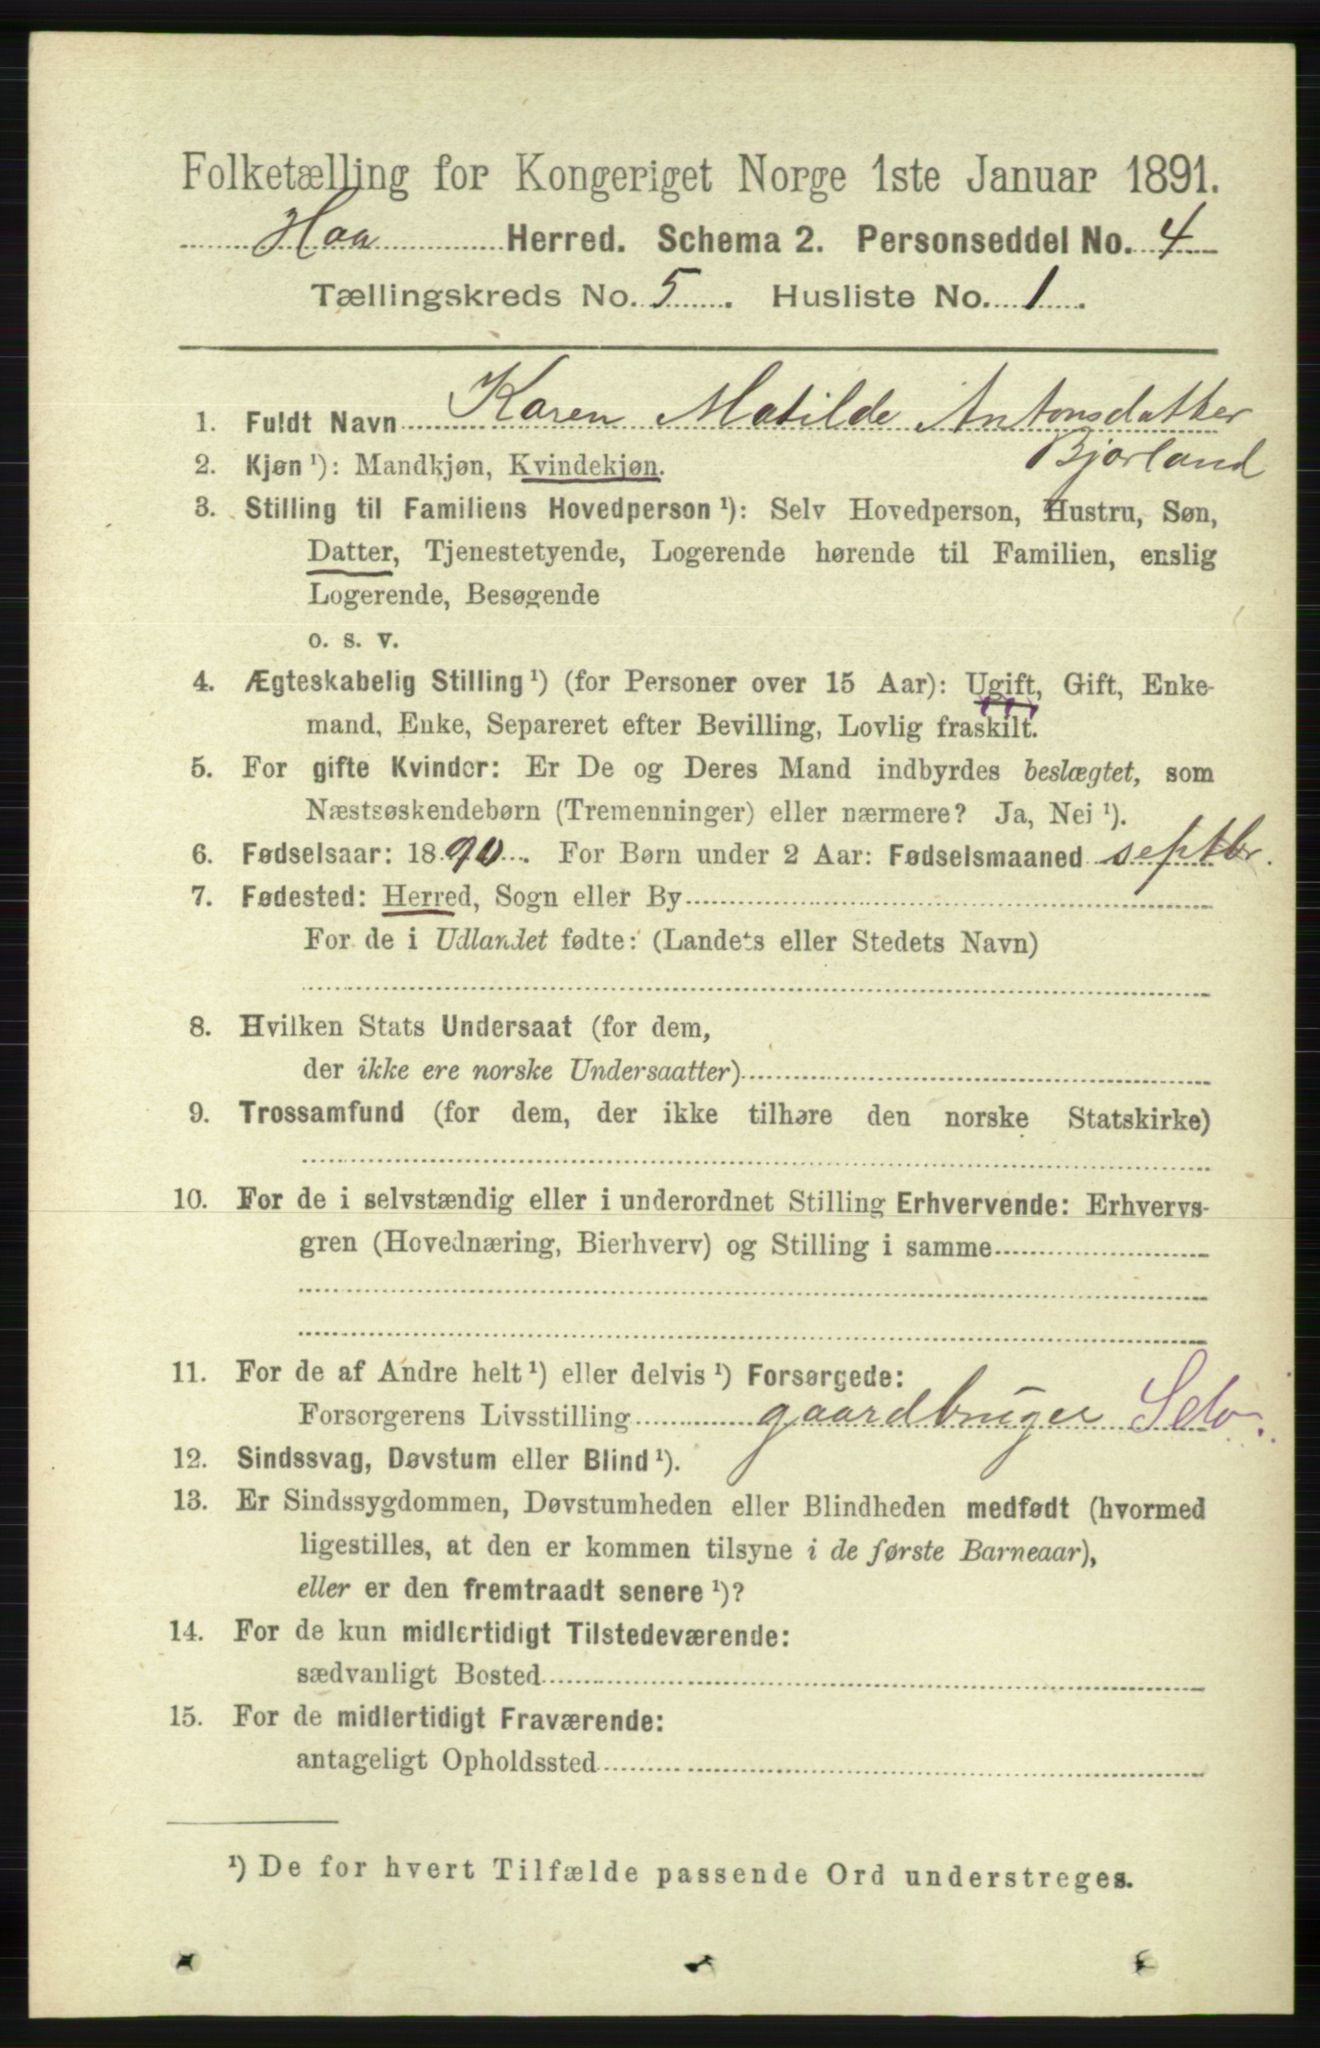 Folketælling for Kongeriget Norge 1ste Januar 1891.
Haa Herred. Schema 2. Personseddel No. 4
Tællingskreds No. 5. Husliste No. 1.
1. Fuldt Navn Karen Matilde Antonsdatter
Bjorland
2. Kjøn ¹): Mandkjøn, Kvindekjøn.
3. Stilling til Familiens Hovedperson ¹): Selv Hovedperson, Hustru, Søn,
Datter, Tjenestetyende, Logerende hørende til Familien, enslig
Logerende, Besøgende
o. s. v.
4. Ægteskabelig Stilling ¹) (for Personer over 15 Aar): Ugift, Gift, Enke-
mand, Enke, Separeret efter Bevilling, Lovlig fraskilt.
5. For gifte Kvinder: Er De og Deres Mand indbyrdes beslægtet, som
Næstsøskendebørn (Tremenninger) eller nærmere? Ja, Nei ¹).
6. Fødselsaar: 1890. For Børn under 2 Aar: Fødselsmaaned septbr.
7. Fødested: Herred, Sogn eller By
For de i Udlandet fødte: (Landets eller Stedets Navn)
8. Hvilken Stats Undersaat (for dem,
der ikke ere norske Undersaatter)
9. Trossamfund (for dem, der ikke tilhøre den norske Statskirke)
10. For de i selvstændig eller i underordnet Stilling Erhvervende: Erhvervs-
gren (Hovednæring, Bierhverv) og Stilling i samme
11. For de af Andre helt ¹) eller delvis ¹) Forsørgede:
Forsørgerens Livsstilling gaardbruger Selv.
12. Sindssvag, Døvstum eller Blind ¹).
13. Er Sindssygdommen, Døvstumheden eller Blindheden medfødt (hvormed
ligestilles, at den er kommen tilsyne i de første Barneaar),
eller er den fremtraadt senere ¹)?
14. For de kun midlertidigt Tilstedeværende:
sædvanligt Bosted
15. For de midlertidigt Fraværende:
antageligt Opholdssted
¹) De for hvert Tilfælde passende Ord understreges.